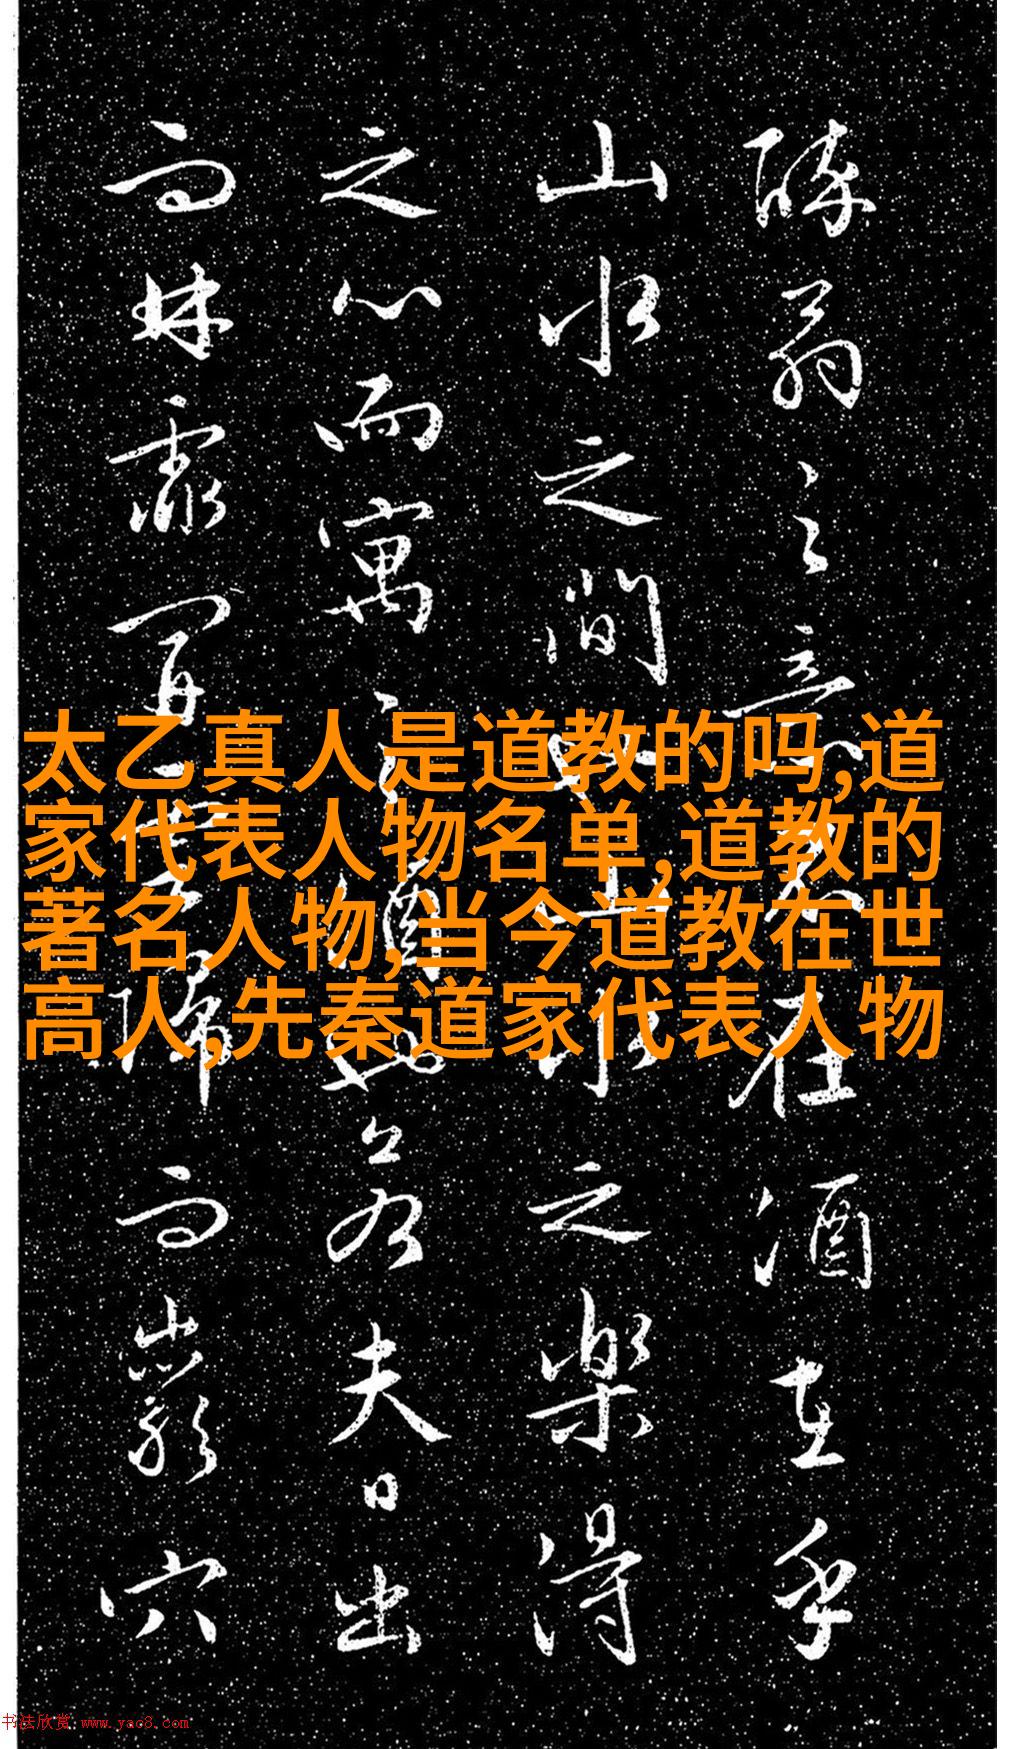 醉翁之意不在酒在乎
山水之間也山水之樂得
之心而寓之酒也若夫日出
而林霏開雲歸而巖穴
太乙真人是道教的吗,道
家代表人物名单,道教的
著名人物,当今道教在世
高人,先秦道家代表人物
书法欣赏 www.yac8.com